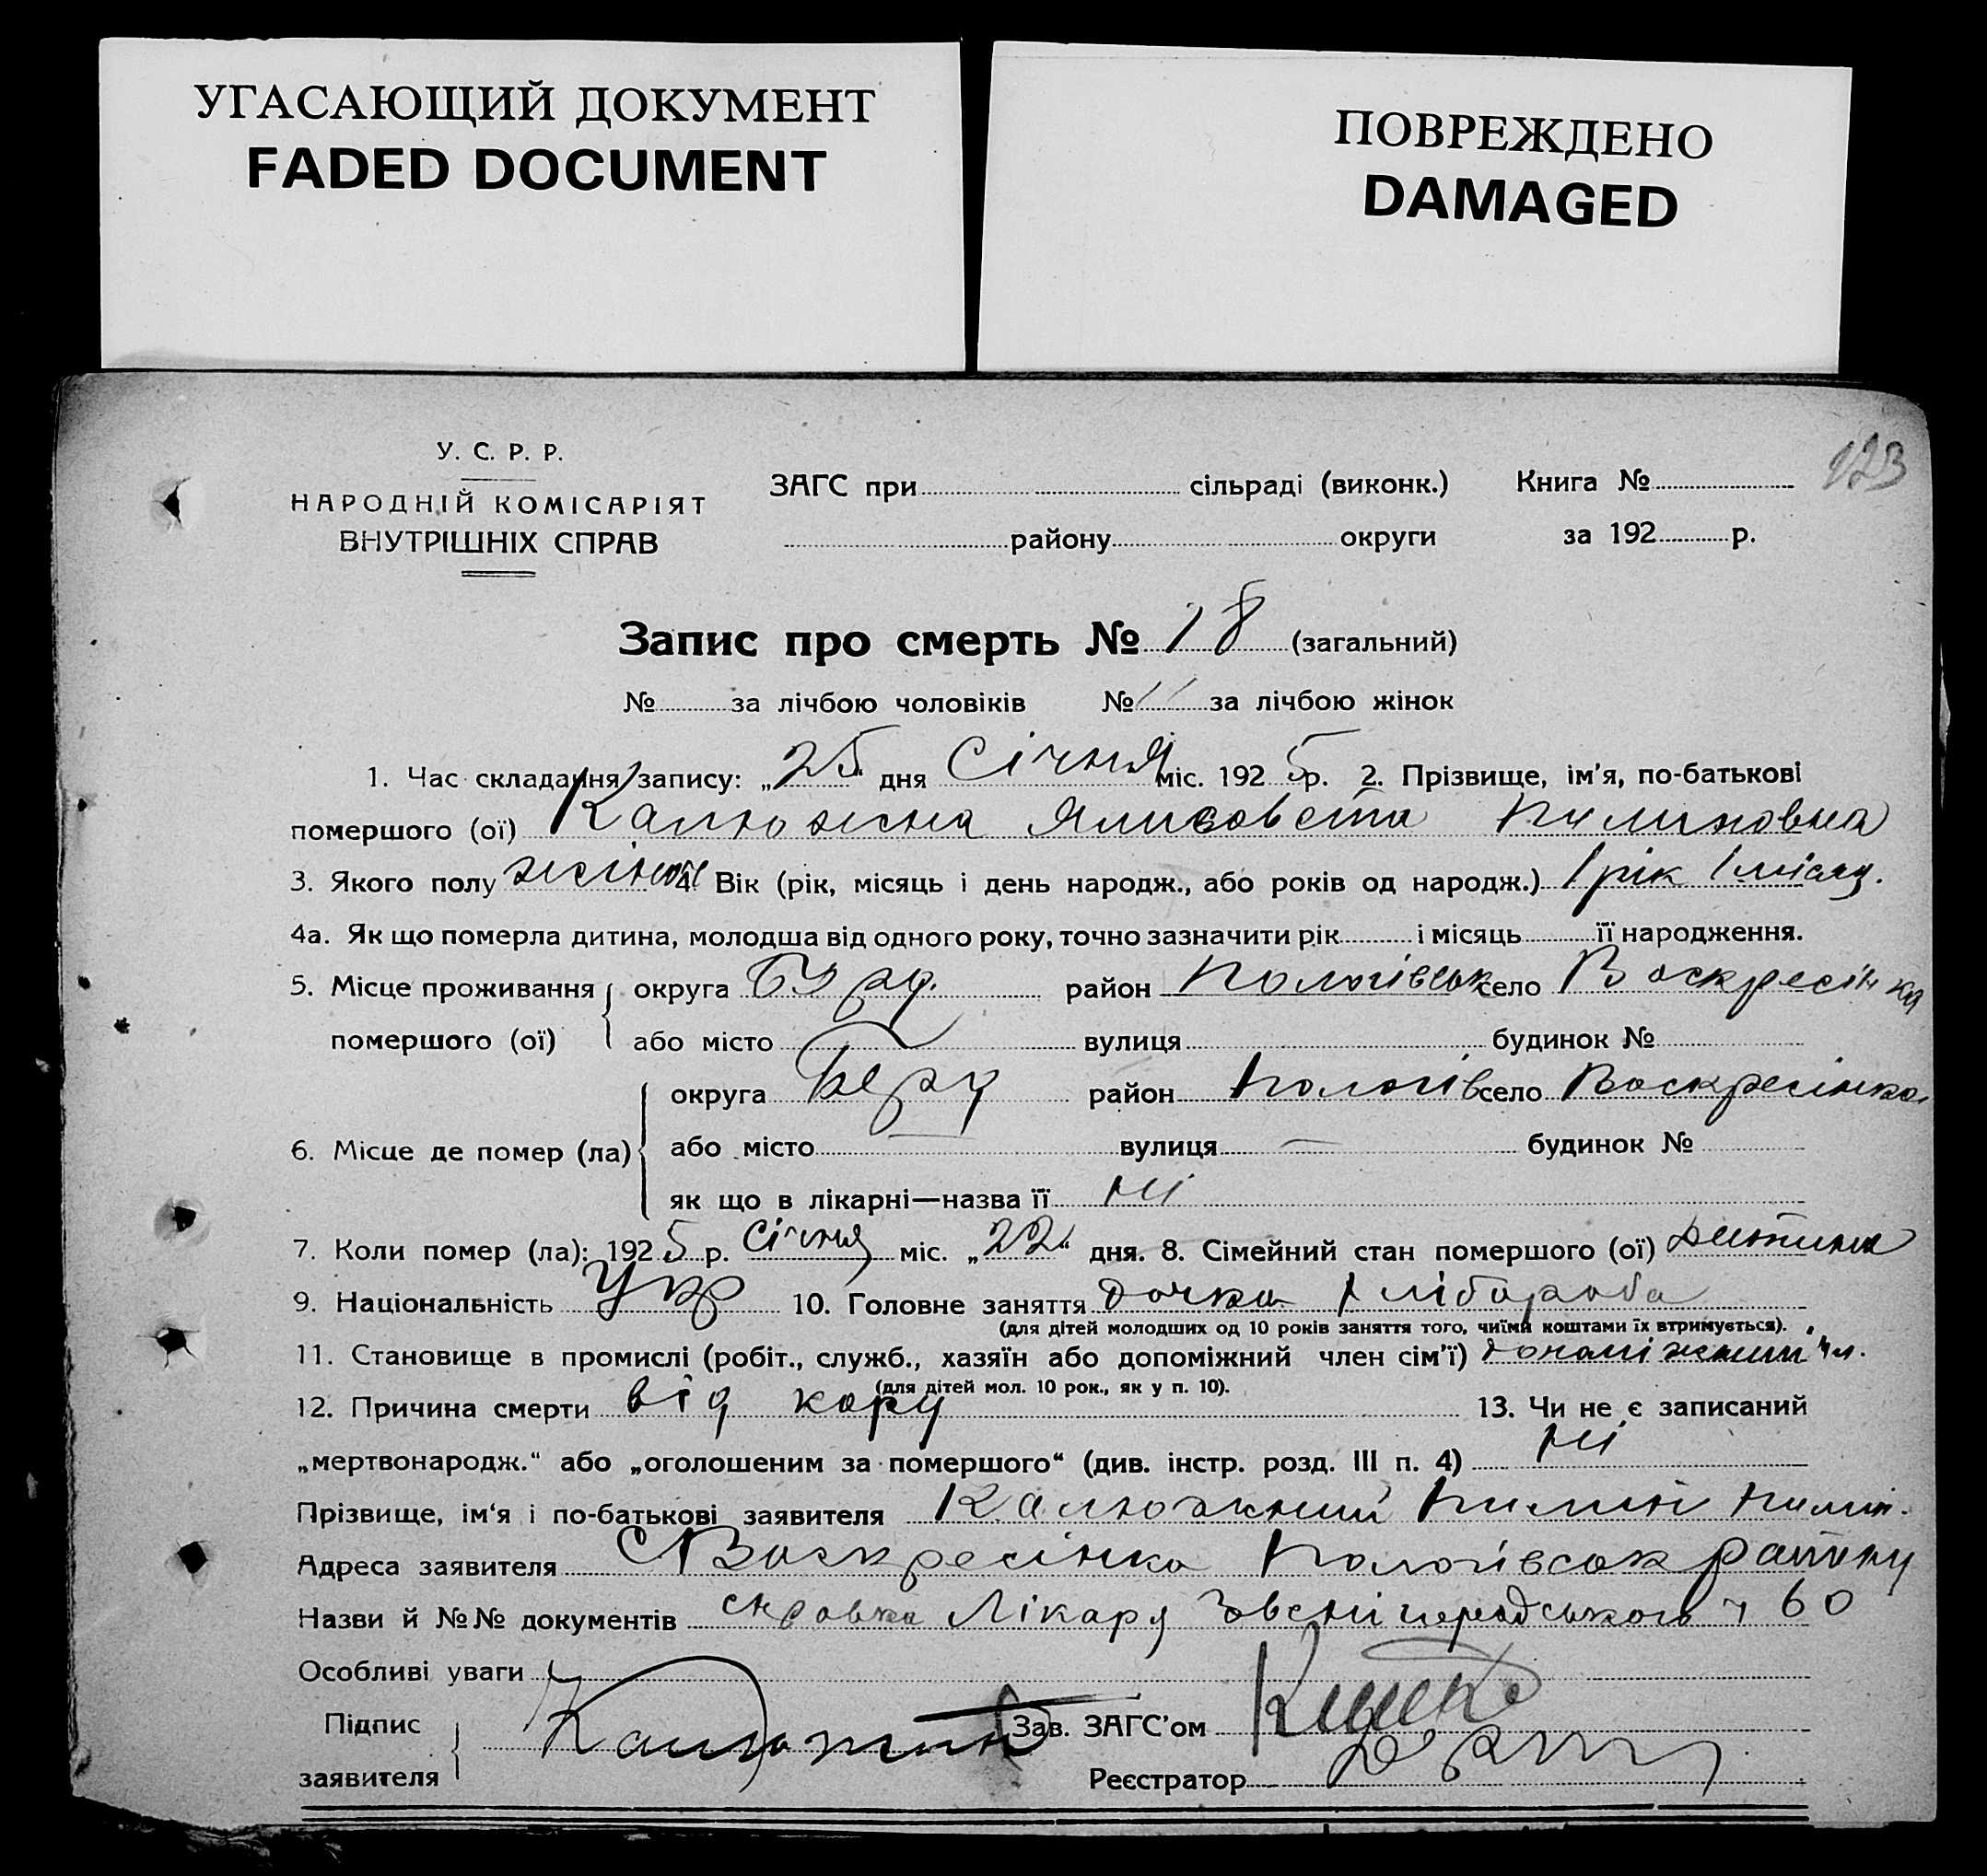 УГАСАЮЩИЙ ДОКУМЕНТ
FADED DOCUMENT
ПОВРЕЖДЕНО
DAMAGED
123
У. С. Р. Р.
НАРОДНІЙ КОМІСАРІЯТ
ВНУТРІШНІХ СПРАВ
ЗАГС при сільраді (виконк.) Книга №
району округи за 192 р.
Запис про смерть № 18 (загальний)
№ за лічбою чоловіків № 11 за лічбою жінок
1. Час складання запису: „25“ дня Січня міс. 1925 р. 2. Прізвище, ім’я, по-батькові
помершого (ої) Калюжна Ялисовета Пилиповна
3. Якого полу жіноч 4. Вік (рік, місяць і день народж., або років од народж.) 1 рік 1 місяц.
4а. Як що померла дитина, молодша від одного року, точно зазначити рік і місяць її народження.
5. Місце проживання округа район Пологівськ село Воскресінка
помершого (ої) або місто вулиця будинок №
округа Берд район Пологів село Воскресінка
6. Місце де помер (ла) або місто — вулиця — будинок №
як що в лікарні—назва її ні
7. Коли помер (ла): 1925 р. Січня міс. „22“ дня. 8. Сімейний стан помершого (ої) дитина
9. Національність Укр 10. Головне заняття дочка хлібороба
(для дітей молодших од 10 років заняття того, чиїми коштами їх втримується).
11. Становище в промислі (робіт., служб., хазяїн або допоміжний член сім’ї) допоміжний чл.
(для дітей мол. 10 рок., як у п. 10).
12. Причина смерти від кору 13. Чи не є записаний
„мертвонародж.“ або „оголошеним за помершого“ (див. інстр. розд. III п. 4) ні
Прізвище, ім’я і по-батькові заявителя Калюжний Пилип Пилип.
Адреса заявителя С Воскресінка Пологівськ району
Назви й №№ документів справка Лікаря 60
Особливі уваги
Підпис Зав. ЗАГС’ом
заявителя Реєстратор